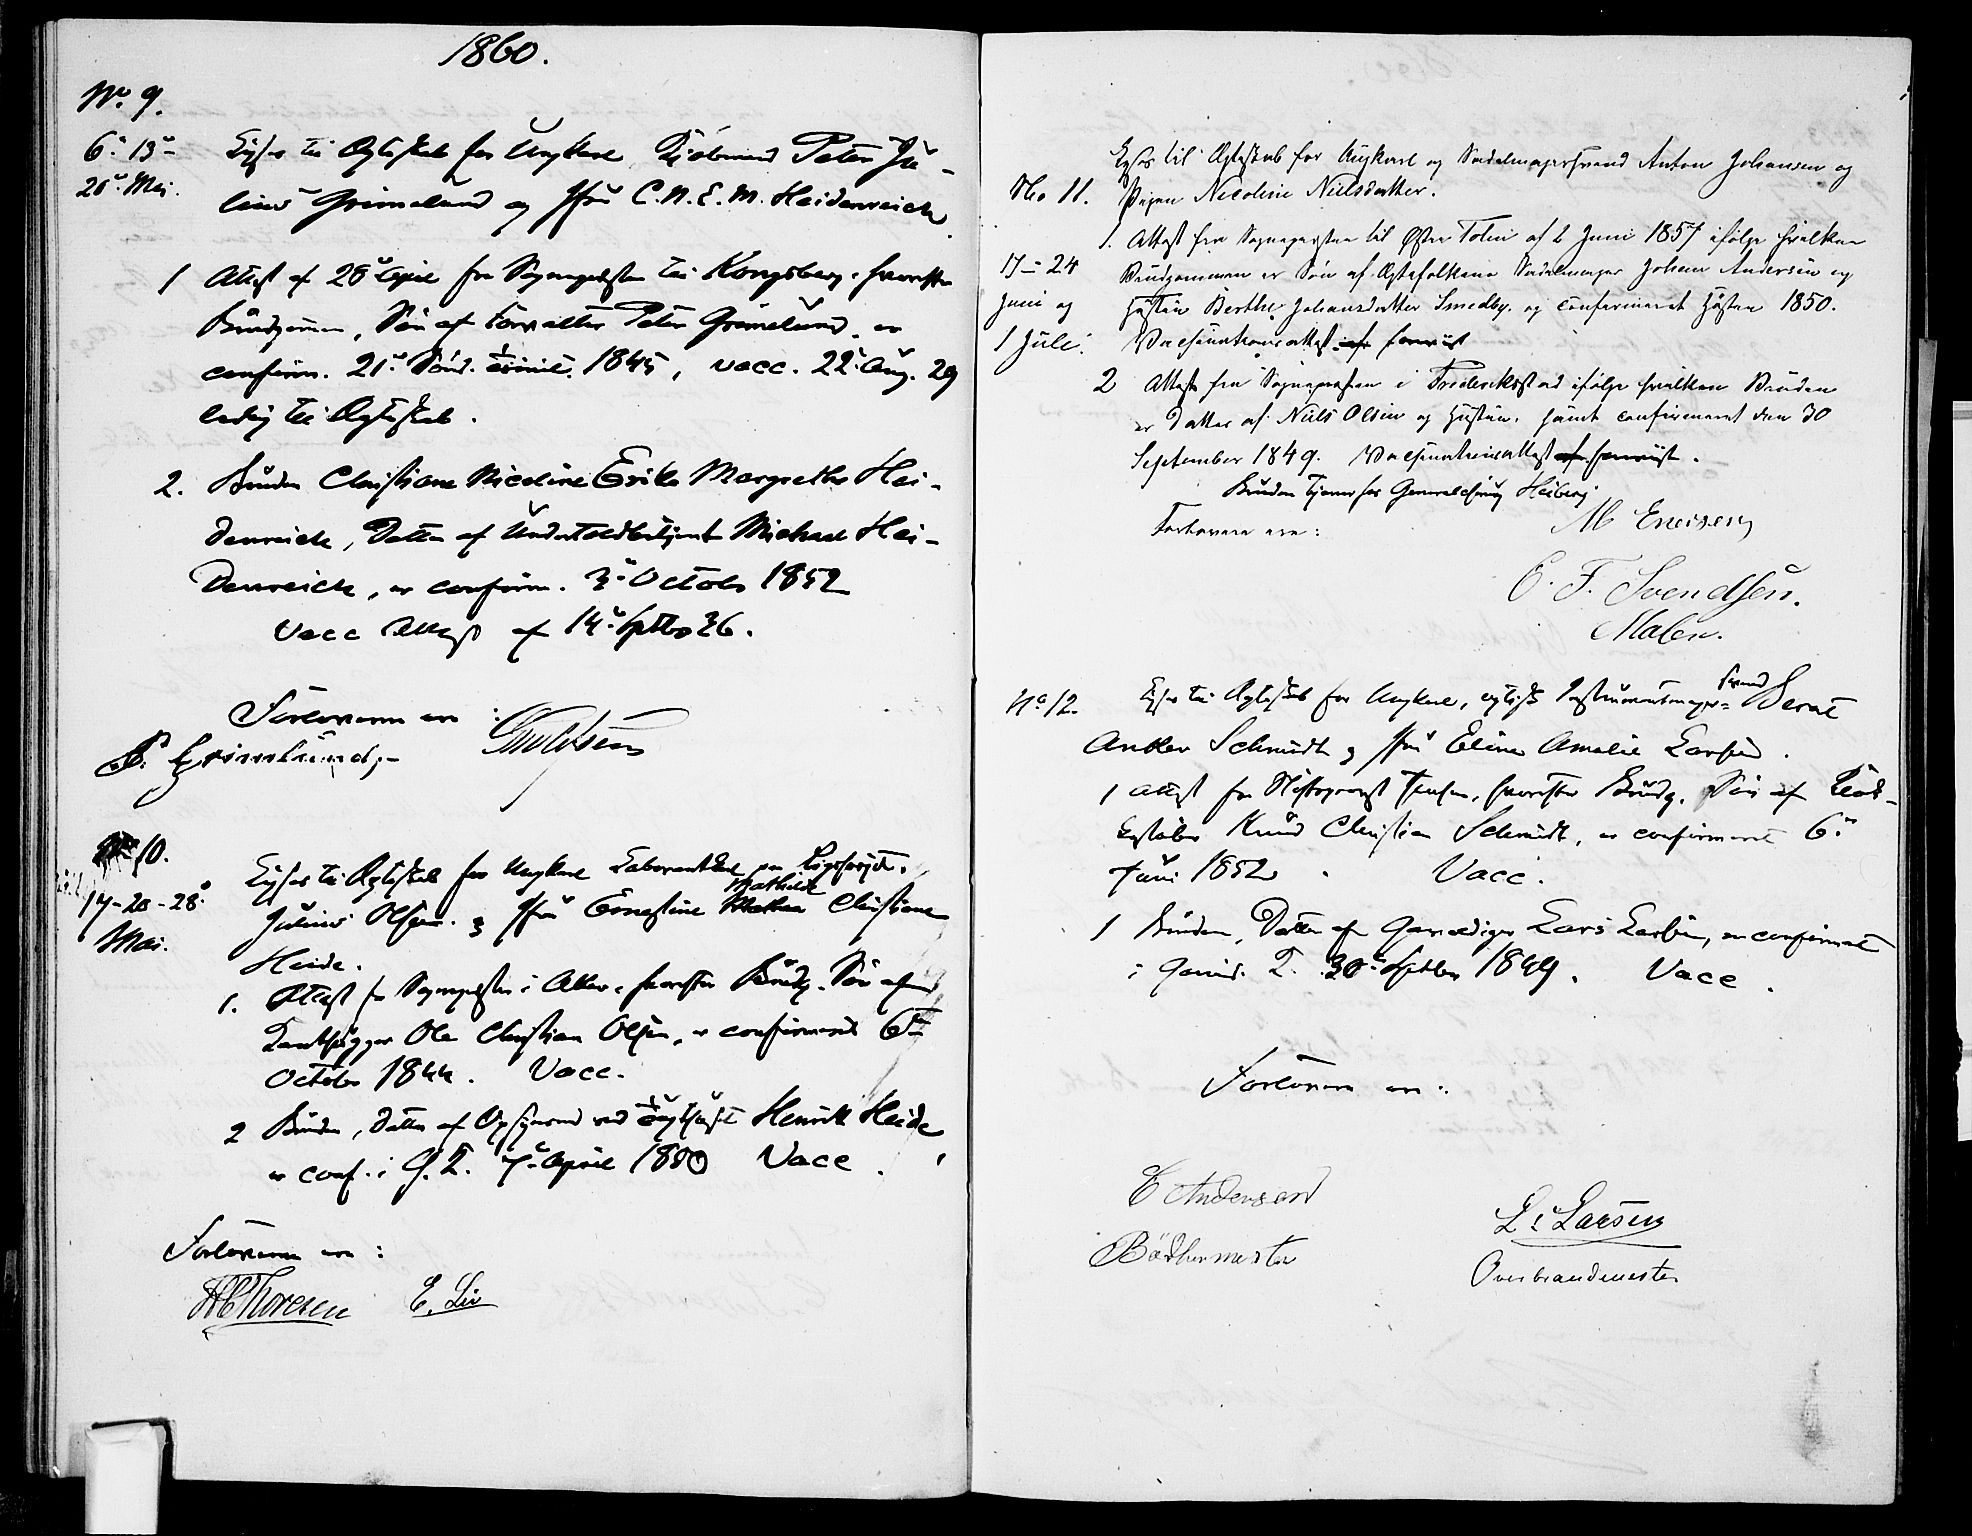 1860.
No. 9.
6. 13-
20. Mai.
Lyses til Ægteskab for Ungkarl, Kjøbmand Peter Ju-
lius Grimelund og Jfru C. N. E. M. Heidenreich.
1 Attest af 25 April fra Sognepresten til Kongsberg, hvorefter
Brudgommen, Søn af Forvalter Peter Grimelund, er
confirm. 21. Sønd. 1845, vacc. 22. Aug. 29
ledig til Ægteskab.
2. Bruden Christiane Nicoline Erike Margrethe Hei-
denreich, Datter af Undertoldbetjent Michael Hei-
denreich, er confirm. 3. Octobr 1852
Vacc Attest af 14. Septbr 36.
Forloverne ere:
P. Grimelund,-
10.
17-20-28.
Mai.
Lyses til Ægteskab for Ungkarl Laborantkarl paa Rigshospit.
Julius Olsen. og Jfru Ernestine Mathilde Christiane
Heide.
1. Attest fra Sognepresten i Aker, hvorefter Brudg. Søn af
Ole Christian Olsen, er confirmeret 6te
October 1844. Vacc.
2 Bruden, Datter af Opsynsmd ved Henrik Heide
er conf. i G. T. 7. April 1850 Vacc.
Forloverne ere:
H C Thoresen E. Lie
No 11.
17-24
Juni og
1 Juli.
Lyses til Ægteskab for Ungkarl og Sadelmagersvend Anton Johansen og
Pigen Nicoline Nielsdatter.
1. Attest fra Sognepresten til Østre Toten af 2 Juni 1857 ifølge hvilken
Brudgommen er Søn af Ægtefolkene Sadelmager Johan Andersen og
Hustru Berthe Johansdatter Smedby, og confirmeret Høsten 1850.
Vaccinationsattest forevist
2 Attest fra Sognepresten i Frederiksstad ifølge hvilken Bruden
er Datter af Niels Olsen og Hustru, samt confirmeret den 30
September 1849. Vaccinationsattest forevist.
Bruden tjener hos Heiberg
Forlovere ere:
C. F. Svendsen.
Maler.
No 12.
Lyses til Ægteskab for Ungkarl, optisk Instrumentmager-svend Bernt
Anker Schmidt og Jfru Eline Amalie Larsen.
1 Attest fra Stiftsprovst hvorefter Brudg. Søn af
Knud Christian Schmidt, er confirmeret 6.
Juni 1852. Vacc.
1 Bruden, Datter af Lars Larsen, er confirmeret
i Garnis. T. 30. Septbr 1849. Vacc.
Forloverne ere:
C Andersen
Bødkermester
L. Larsen
Overbrandmester